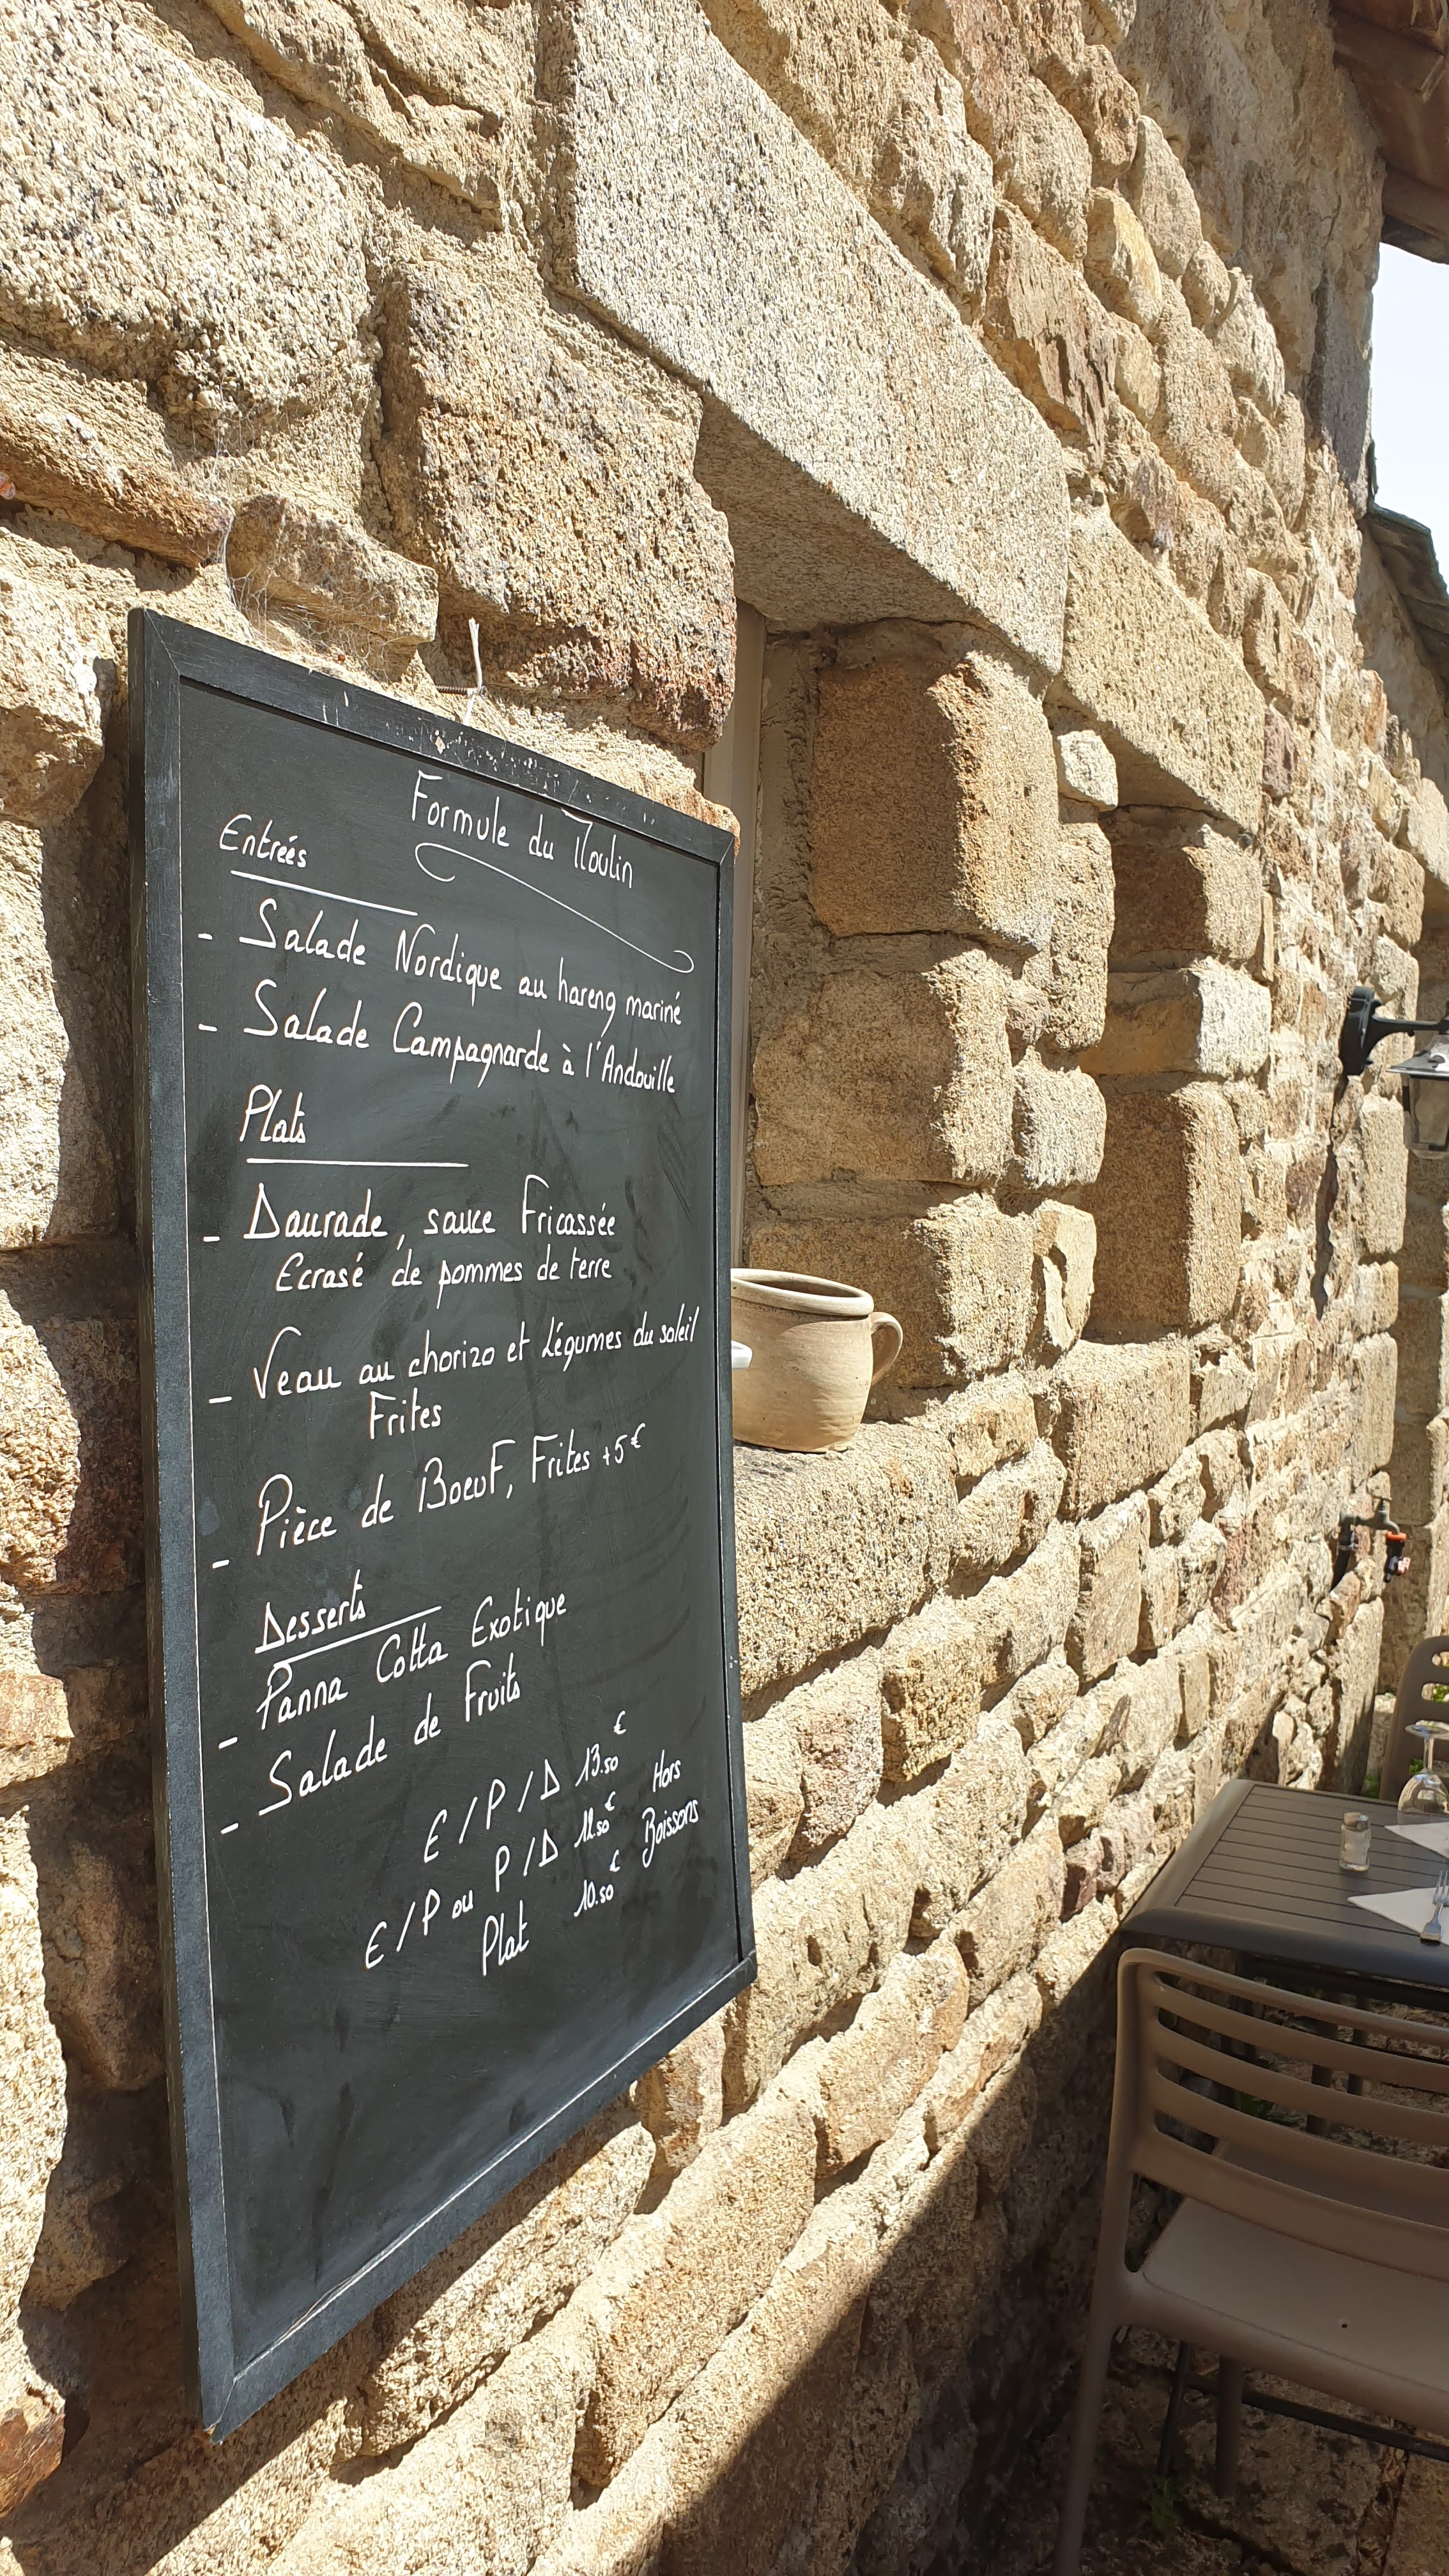 Formule du Moulin
Entreés
- Salade Nordique au hareng mariné
- Salade Campagnarde à l'Andouille
Plats
- Daurade, sauce Fricassée
Ecrasé de pommes de terre
- Veau au chorizo et Légumes du soleil
Frites
- Pièce de Boeuf, Frites +5€
Desserts
- Panna Cotta Exotique
- Salade de Fruits
E/P/D 13.50€
E/P ou P/D 12.50€ Hors Boissons
Plat 10.50€